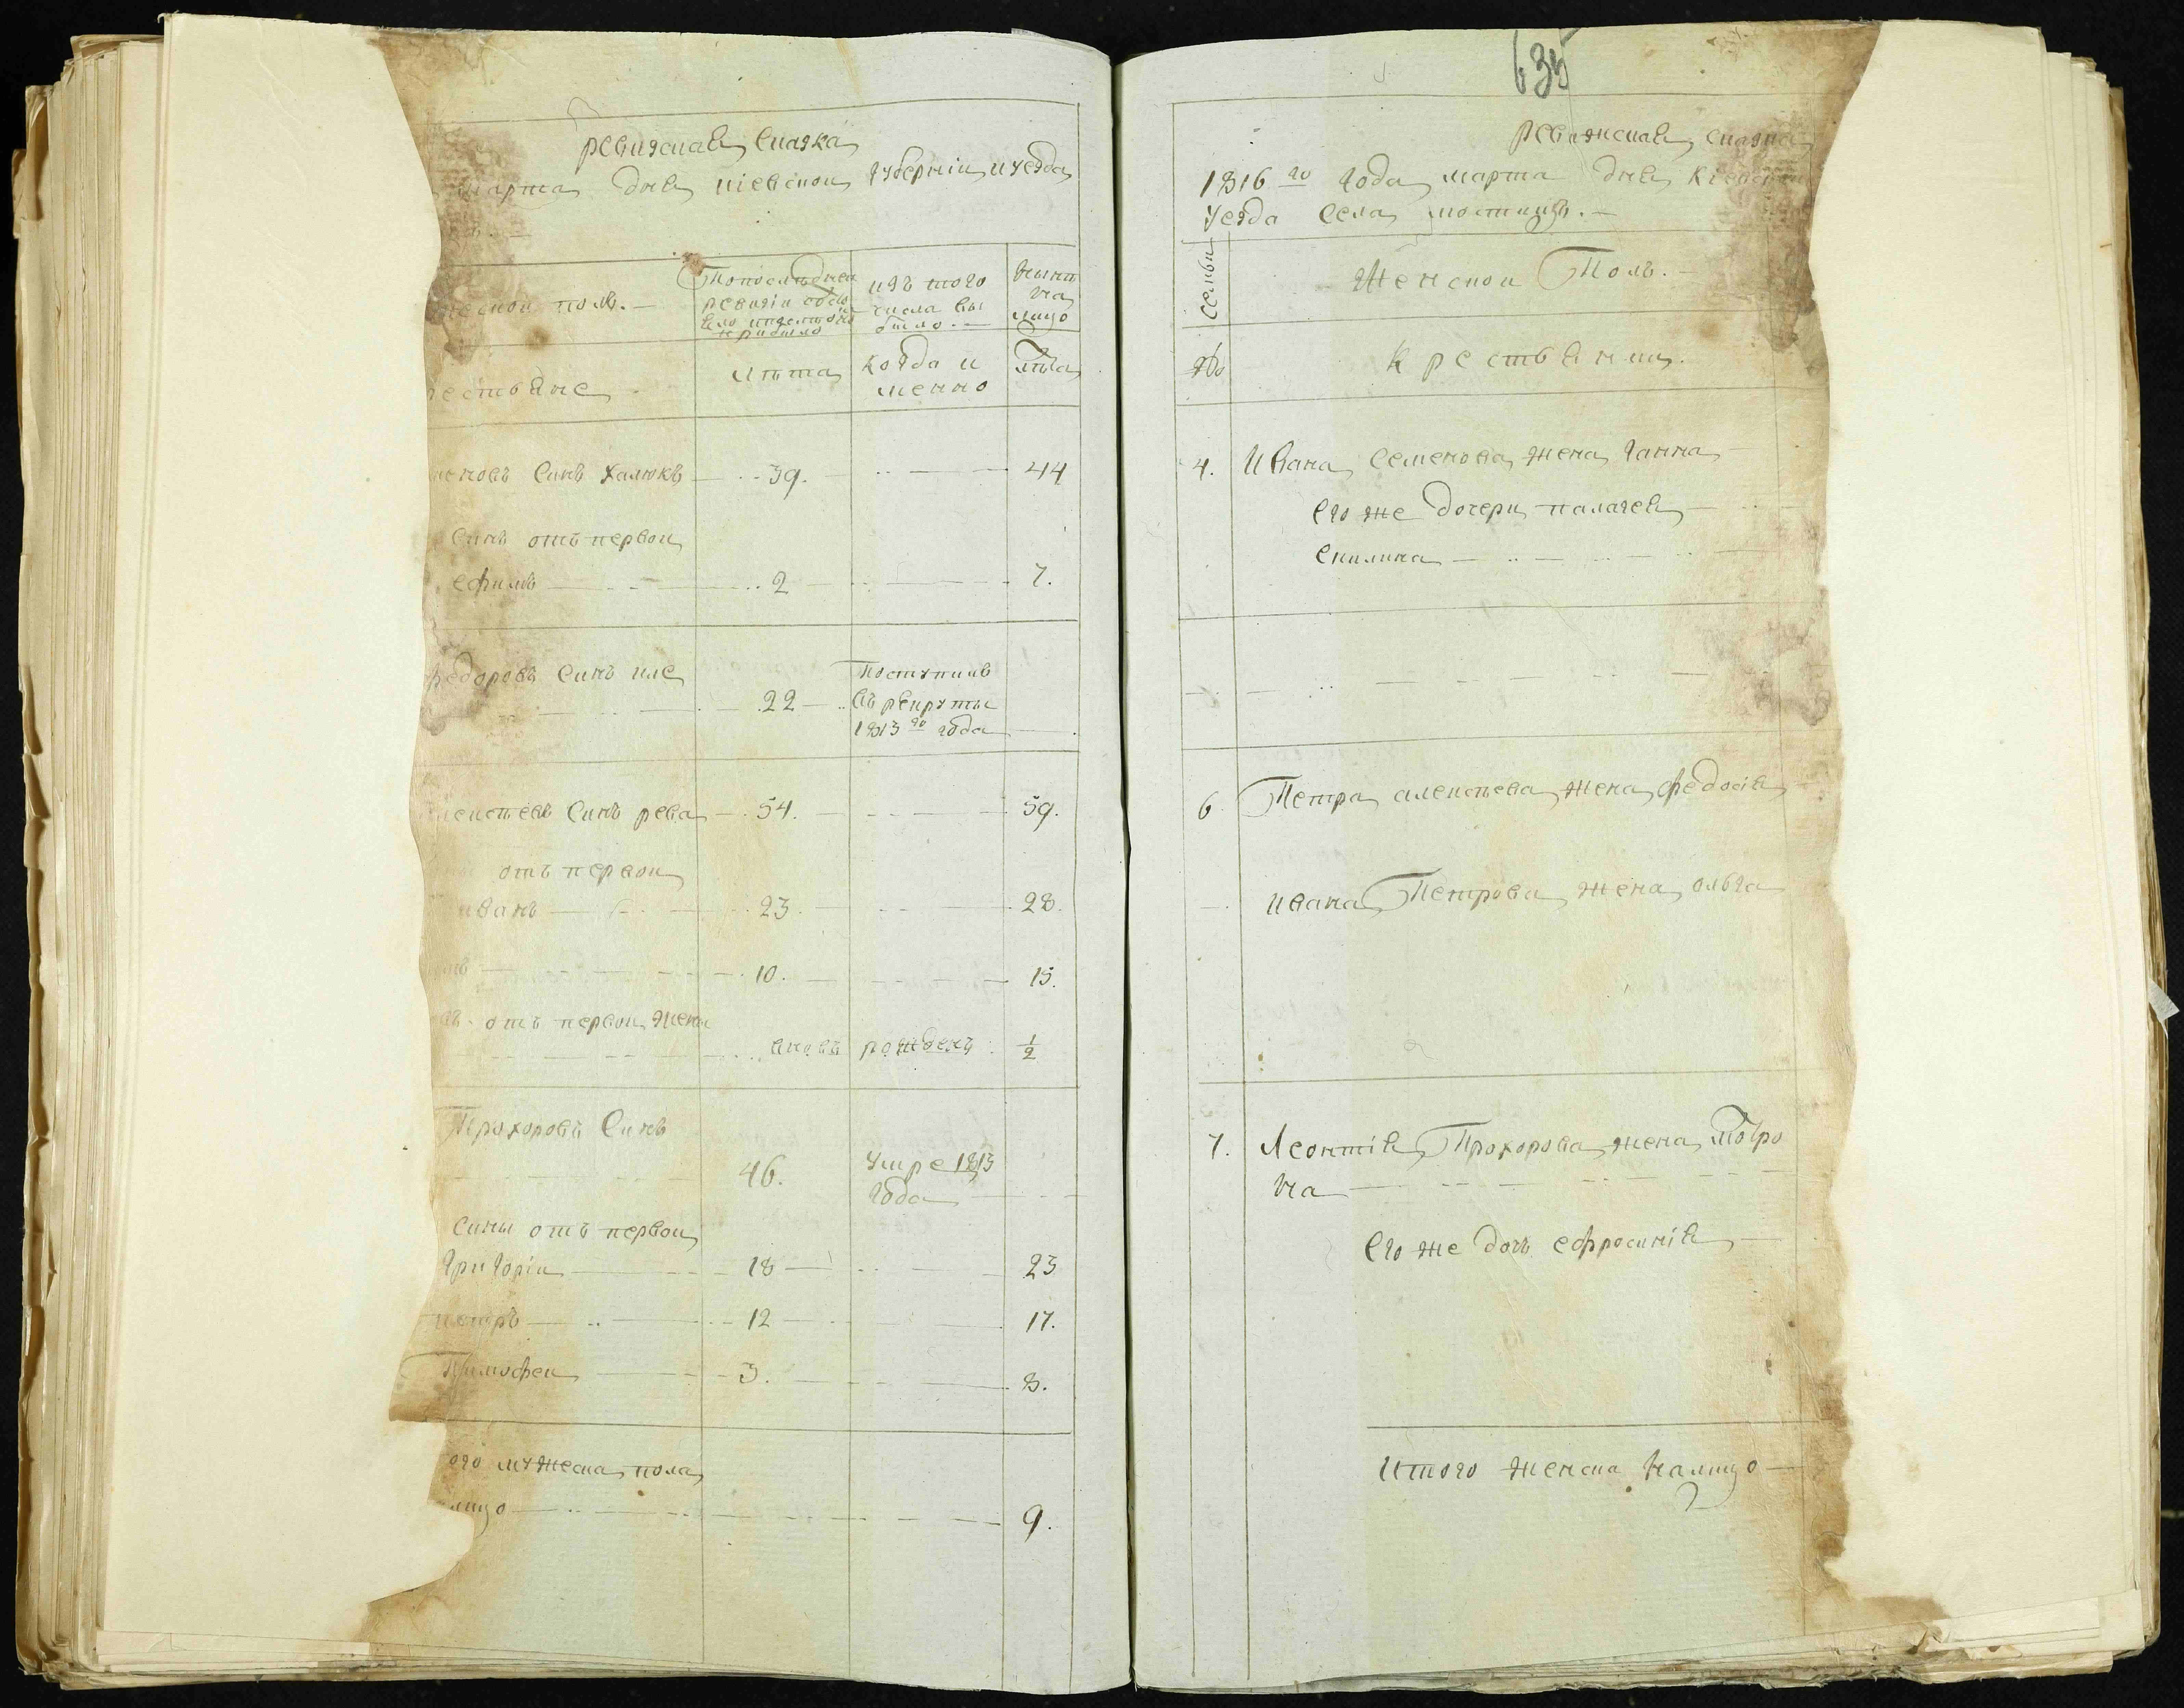 ревизская сказка
марта дня киевской губерніи и уезда
ской полъ.
По последней
ревизіи состо
яло и после оно
прибыло
изъ того
числа вы
было.
ныне
на
лицо
рестьяне
лета
когда и
менно
лета
еновъ синъ халюкъ 39. 44
синъ отъ первой
ефимъ 2 7.
федоровъ синъ иле
22 Поступилъ
въ рекруты
1813 го года
лексеевъ синъ рева 54. 59.
отъ первой
иванъ 23. 28.
10. 15.
отъ первой жены
вновь рожденъ 1/2
Прохоровъ Синъ
46. умре 1813
года
сины отъ первой
Григорій 18 23
петръ 12 17.
Тимофей 3. 8.
ого мужеска пола
лицо 9.
635
ревижская сказка
1816 го года марта дня Киевской
уезда села мостищъ.
семьи
Женской Полъ.
№
Крестьянки.
4. Ивана Семенова жена Ганна
Его же дочери палагея
Екилина
6 Петра алексеева жена федосія
ивана Петрова жена ольга
7. Леонтія Прохорова жена Мотро
на
Его же дочъ ефросинія
Итого женска налицо